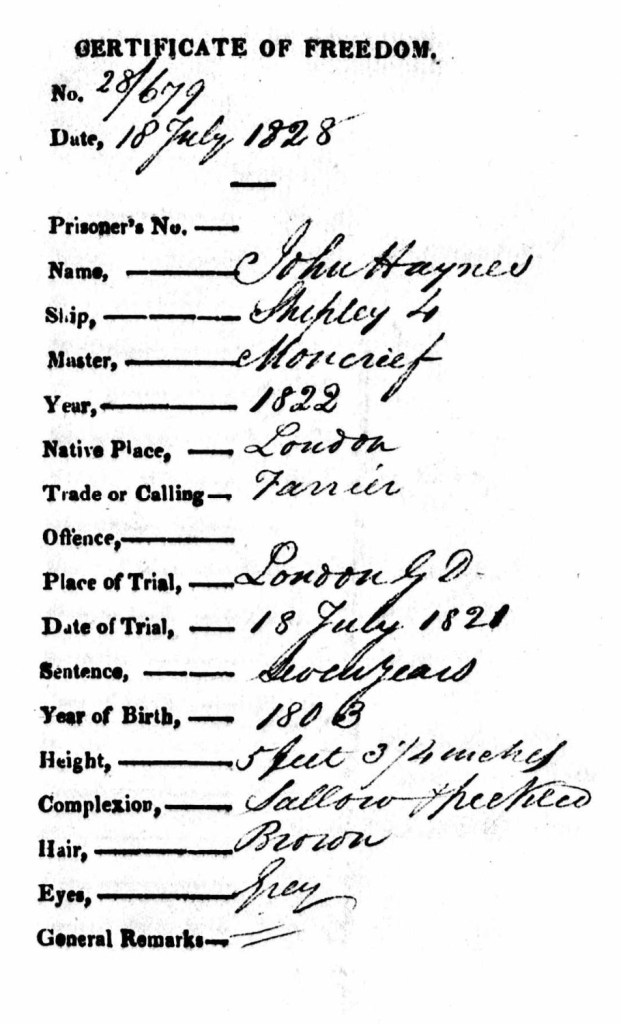 CERTIFICATE OF FREEDOM.
No. 28/679
Date, 18 July 1828
Prisoner's No. —
Name, — John Haynes
Ship, — Shipley 4
Master, — Moncrief
Year, — 1822
Native Place, — London
Trade or Calling — Farrier
Offence, —
Place of Trial, — London G D
Date of Trial, — 18 July 1821
Sentence, — Seven years
Year of Birth, — 1803
Height, — 5 feet 3 1/4 inches
Complexion, — Sallow & freckled
Hair, — Brown
Eyes, — Grey
General Remarks —